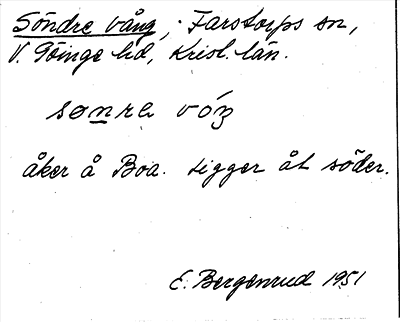 Söndre vång, Farstorps sn,
V. Göinge hd, Krist. län.
sønrɑ vóŋ
åker å Boa. Ligger åt söder.
E. Bergenrud 1951